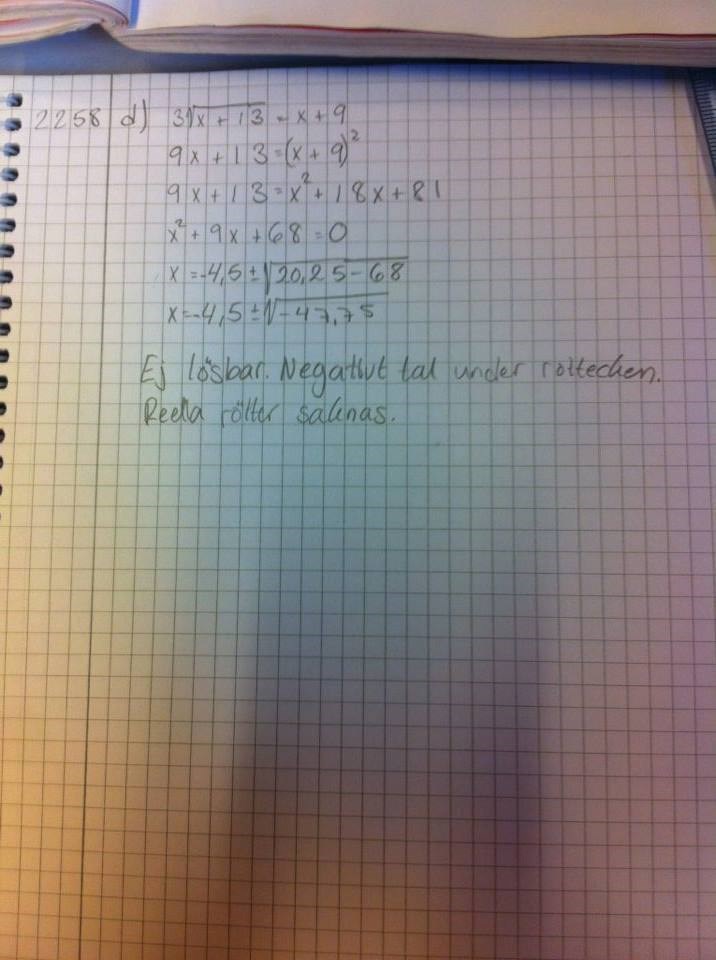 2258 d) 3√x+13 = x+9
9x+13=(x+9)²
9x+13=x²+18x+81
x²+9x+68=0
x=-4,5±√20,25-68
x=-4,5±√-47,75
Ej lösbar. Negativt tal under rottecken.
Reella rötter saknas.